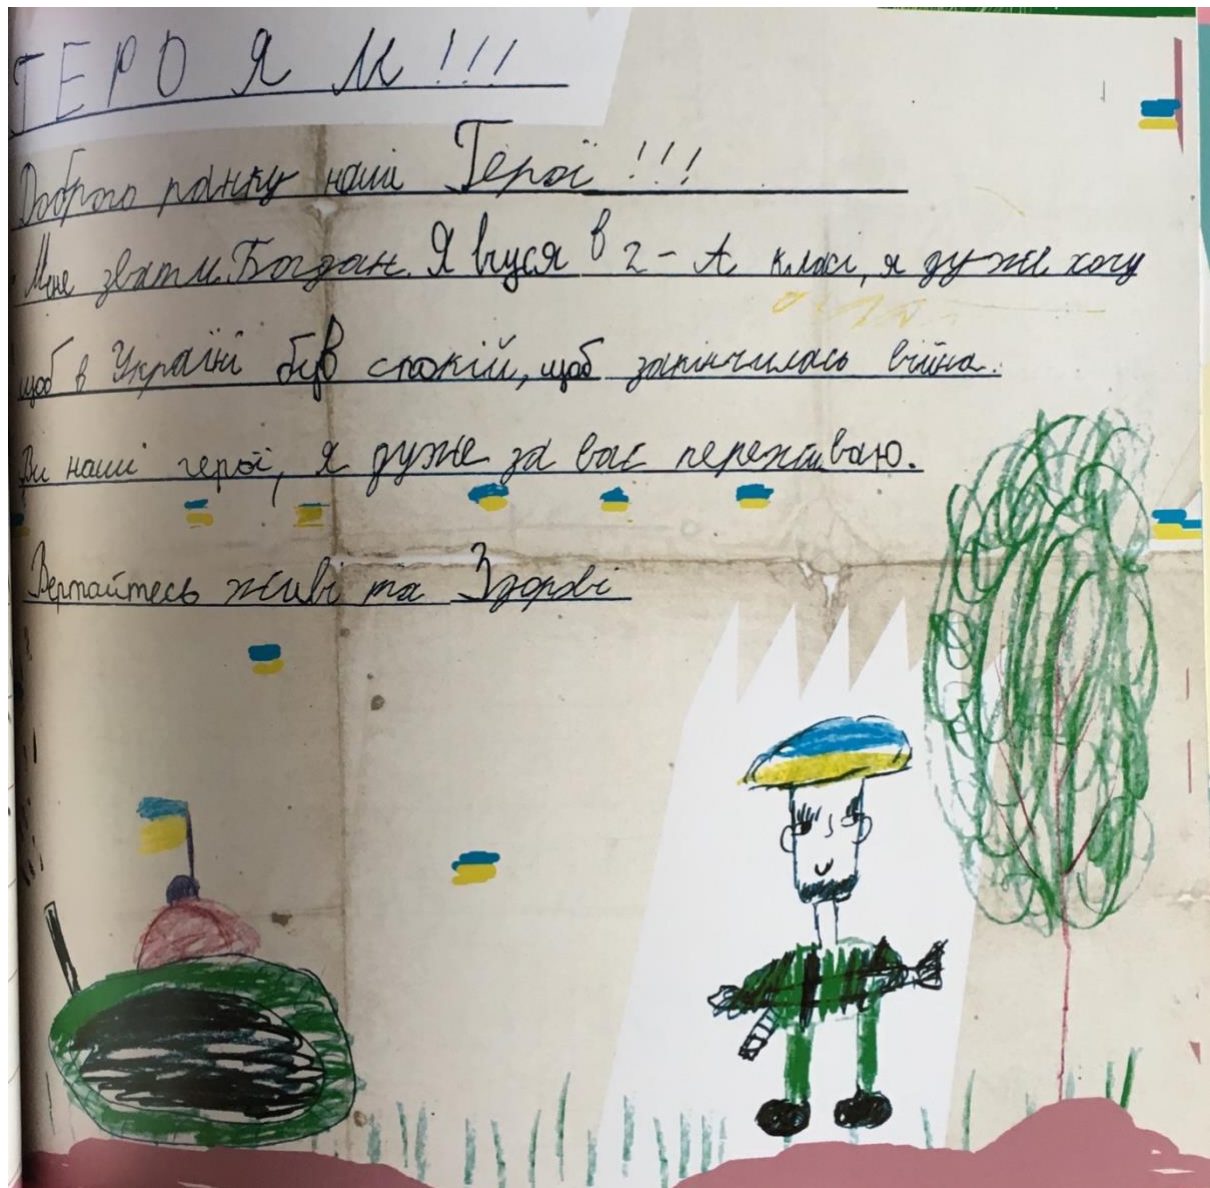 ГЕРОЯМ!!!
Доброго ранку наші Герої!!!
Мене звати Богдан. Я вчуся в 2-А класі, я дуже хочу
щоб в Україні був спокій, щоб закінчилась війна.
Ви наші герої, я дуже за вас переживаю.
Вертайтесь живі та Здорові